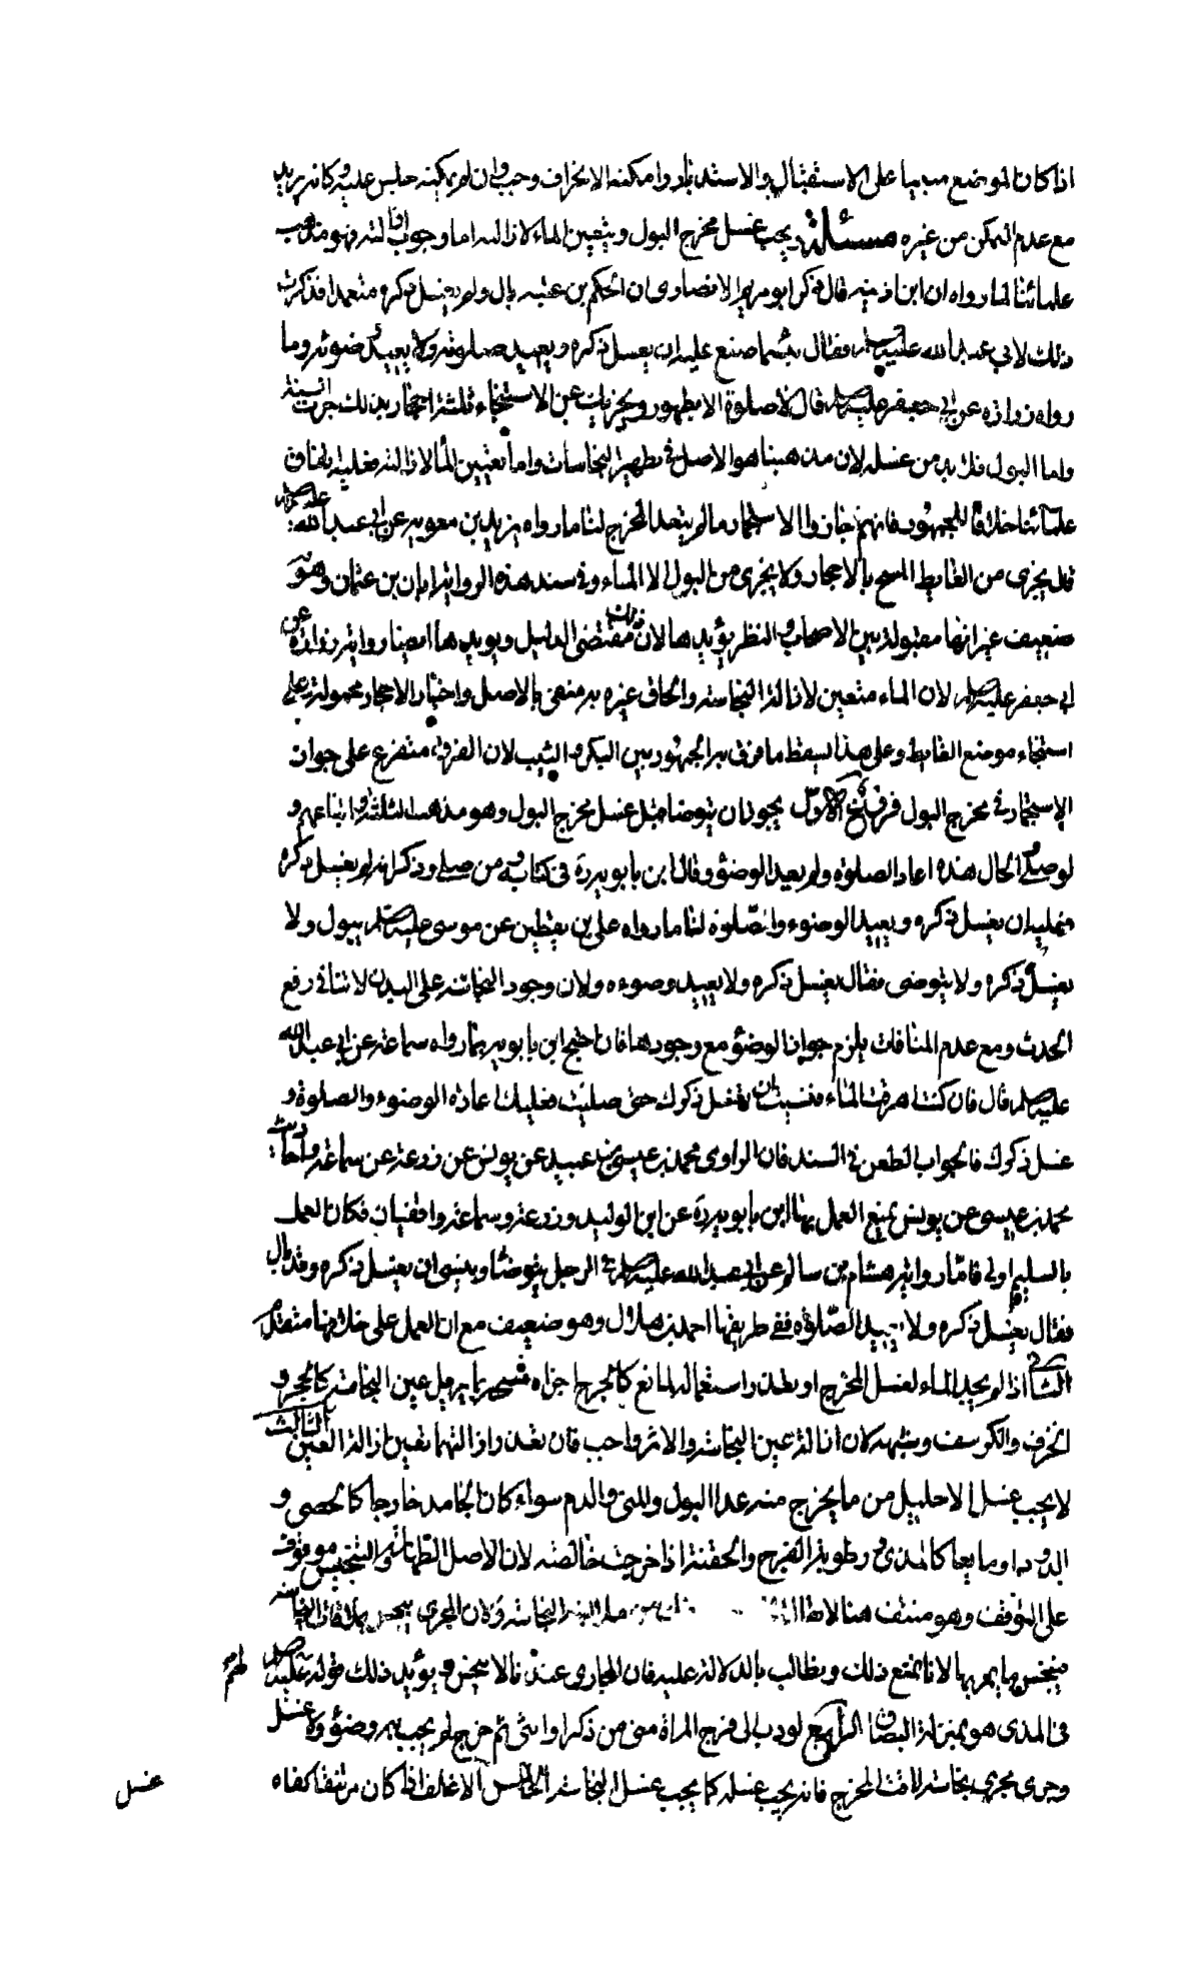 اذا كان الموضع مبنيا على الاستقبال والاستدبار وامكنه الانحراف وجب وان لم يمكنه جلس عليه وكانه يريد
مع عدم التمكن من غيره مسئلة ويجب غسل مخرج البول ويتعين الماء لازالته اما وجوب ازالته فهو مذهب
علمائنا لما رواه ان ابن اذينه قال ذكر ابو مريم الانصارى ان الحكم بن عتيبه بال ولم يغسل ذكره متعمدا فذكرت
ذلك لابى عبد الله عليه السلام فقال بئسما صنع عليه ان يغسل ذكره ويعيد صلوته ولا يعيد وضوئه وما
رواه زراره عن ابى جعفر عليه السلام قال لا صلوة الا بطهور ويجزيك عن الاستنجاء ثلثة احجار بذلك جرت السنة
واما البول فلا بد من غسله لان مذهبنا هو الاصل فى تطهير النجاسات واما تعيين الماء لازالته فعليه اتفاق
علمائنا خلافا للجمهور فانهم اجازوا الاستجمار ما لم يتعد المخرج لنا ما رواه يزيد بن معويه عن ابى عبد الله عليه السلام
قال يجزى من الغايط المسح بالاحجار ولا يجزى من البول الا الماء وفى سند هذه الرواية ابان بن عثمان وهو
ضعيف غير انها مقبولة بين الاصحاب والنظر يؤيدها لان ذلك مقتضى الدليل ويويدها ايضا رواية زراره عن
ابى جعفر عليه السلام لان الماء متعين لازالة النجاسة والحاق غيره به منفى بالاصل واخبار الاحجار محمولة على
استنجاء موضع الغايط وعلى هذا يسقط ما فرق به الجمهور بين البكر والثيب لان الفرق متفرع على جواز
الاستجمار فى مخرج البول فروع الاول يجوز ان يتوضا قبل غسل مخرج البول وهو مذهب الثلثة واتباعهم و
لو صلى والحال هذه اعاد الصلوة ولم يعيد الوضؤ وقال ابن بابويه ره فى كتابه من صلى وذكر انه لم يغسل ذكره
فعليه ان يغسل ذكره ويعيد الوضوء والصلوة لنا ما رواه على بن يقطين عن موسى عليه السلام يبول ولا
يغسل ذكره ولا يتوضى فقال يغسل ذكره ولا يعيد وضوءه ولان وجود النجاسة على البدن لا تنافى رفع
الحدث ومع عدم المنافات يلزم جواز الوضؤ مع وجودها فان احتج ابن بابويه بما رواه سماعة عن ابى عبد الله
عليه السلام قال فان كنت اهرقت الماء فنسيت ان تغسل ذكرك حتى صليت فعليك اعادة الوضوء والصلوة و
غسل ذكرك فالجواب الطعن فى السند فان الراوى محمد بن عيسى بن عبيد عن يونس عن زرعة عن سماعة واحاديث
محمد بن عيسى عن يونس يمنع العمل بها ابن بابويه ره عن ابن الوليد وزرعة وسماعة واقفيان فكان العمل
بالسليم اولى فاما رواية هشام بن سالم عن ابى عبد الله عليه السلام فى الرجل يتوضا وينسى ان يغسل ذكره وقد بال
فقال يغسل ذكره ولا يعيد الصلوة ففى طريقها احمد بن هلال وهو ضعيف مع ان العمل على خلافها متفق
الثانى اذا لم يجد الماء لغسل المخرج او تعذر استعماله لمانع كالجرح اجزاه مسحه بما يزيل عين النجاسة كالحجر و
الخرق والكرسف وشبهه لان ازالة عين النجاسة والاثر واجب فان تعذر ازالتهما تعين ازالة العين الثالث
لا يجب غسل الاحليل من ما يخرج منه عدا البول والمنى والدم سواء كان الجامد خارجا كالحصى و
الدود او مايعا كالمذى ورطوبة الفرج والحقنة اذا خرجت خالصة لان الاصل الطهارة والتنجيس موقوف
على التوقف وهو منتف هنا لا يقال
فينجس ما يمر بها لانا نمنع ذلك ونطالب بالدلالة عليه فان المجارى عندنا لا ينجس ويؤيد ذلك قوله عليه السلام لهم
فى المذى هو بمنزلة البصاق الرابع لو دب الى فرج المراة منى من ذكر او انثى ثم خرج لم يجب به وضؤ ولا غسل
وجرى مجرى نجاسة لاقت المخرج فانه يجب غسله كما يجب غسل النجاسة الخامس الاغلف اذا كان مرتتقا كفاه
غسل